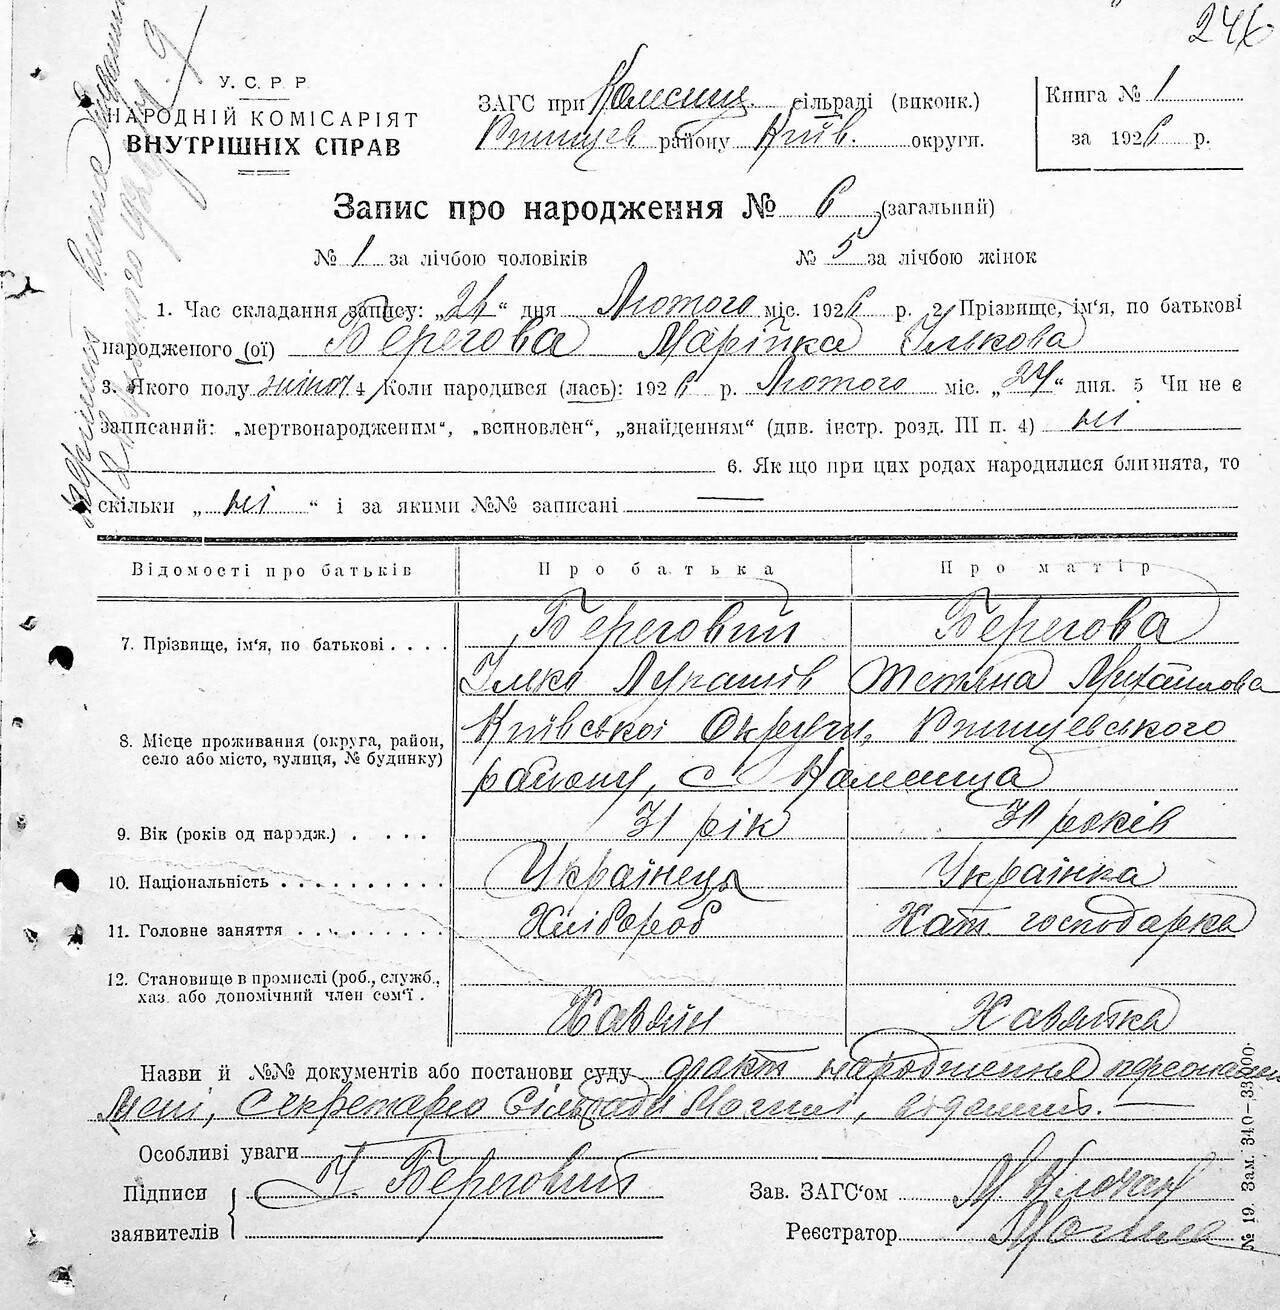 246
У. С. Р. Р.
НАРОДНІЙ КОМІСАРІЯТ
ВНУТРІШНІХ СПРАВ
ЗАГС при сільраді (виконк.)
Ржищев району Київ. округи.
Книга № 1
за 1926 р.
Запис про народження № 6 (загальний)
№ 1 за лічбою чоловіків № 5 за лічбою жінок
1. Час складання запису: „ “ дня Лютого міс. 1926 р. 2. Прізвище, ім‘я, по батькові
народженого (ої) Берегова Марійка Ількова
3. Якого полу жіноч 4 Коли народився (лась): 1926 р. Лютого міс. „ “ дня. 5 Чи не є
записаний: „мертвонародженим“, „всиновлен“, „знайденням“ (див. інстр. розд. III п. 4) ні
6. Якщо при цих родах народилися близнята, то
скільки „ ні “ і за якими №№ записані —
Відомості про батьків Про батька Про матір
7. Прізвище, ім‘я, по батькові . . . . Береговий Берегова
Ілько Лукашів Тетяна Михайлова
8. Місце проживання (округа, район, село або місто, вулиця, № будинку) Київської Округи, Ржищевського
району, с
9. Вік (років од народж.) . . . . 31 рік 31 років
10. Національність . . . . . . . . . . Українець Українка
11. Головне заняття . . . . . . . . . Хлібороб Хат. господарка
12. Становище в промислі (роб., служб., хаз. або допомічний член сем‘ї . Хазяїн Хазяйка
Назви й №№ документів або постанови суду факт народження
мені, Секретарю Сільради
Особливі уваги
Підписи заявителів І. Береговий
Зав. ЗАГС‘ом М. Клочан
Реєстратор
№ 19. Зам. 340—33000.